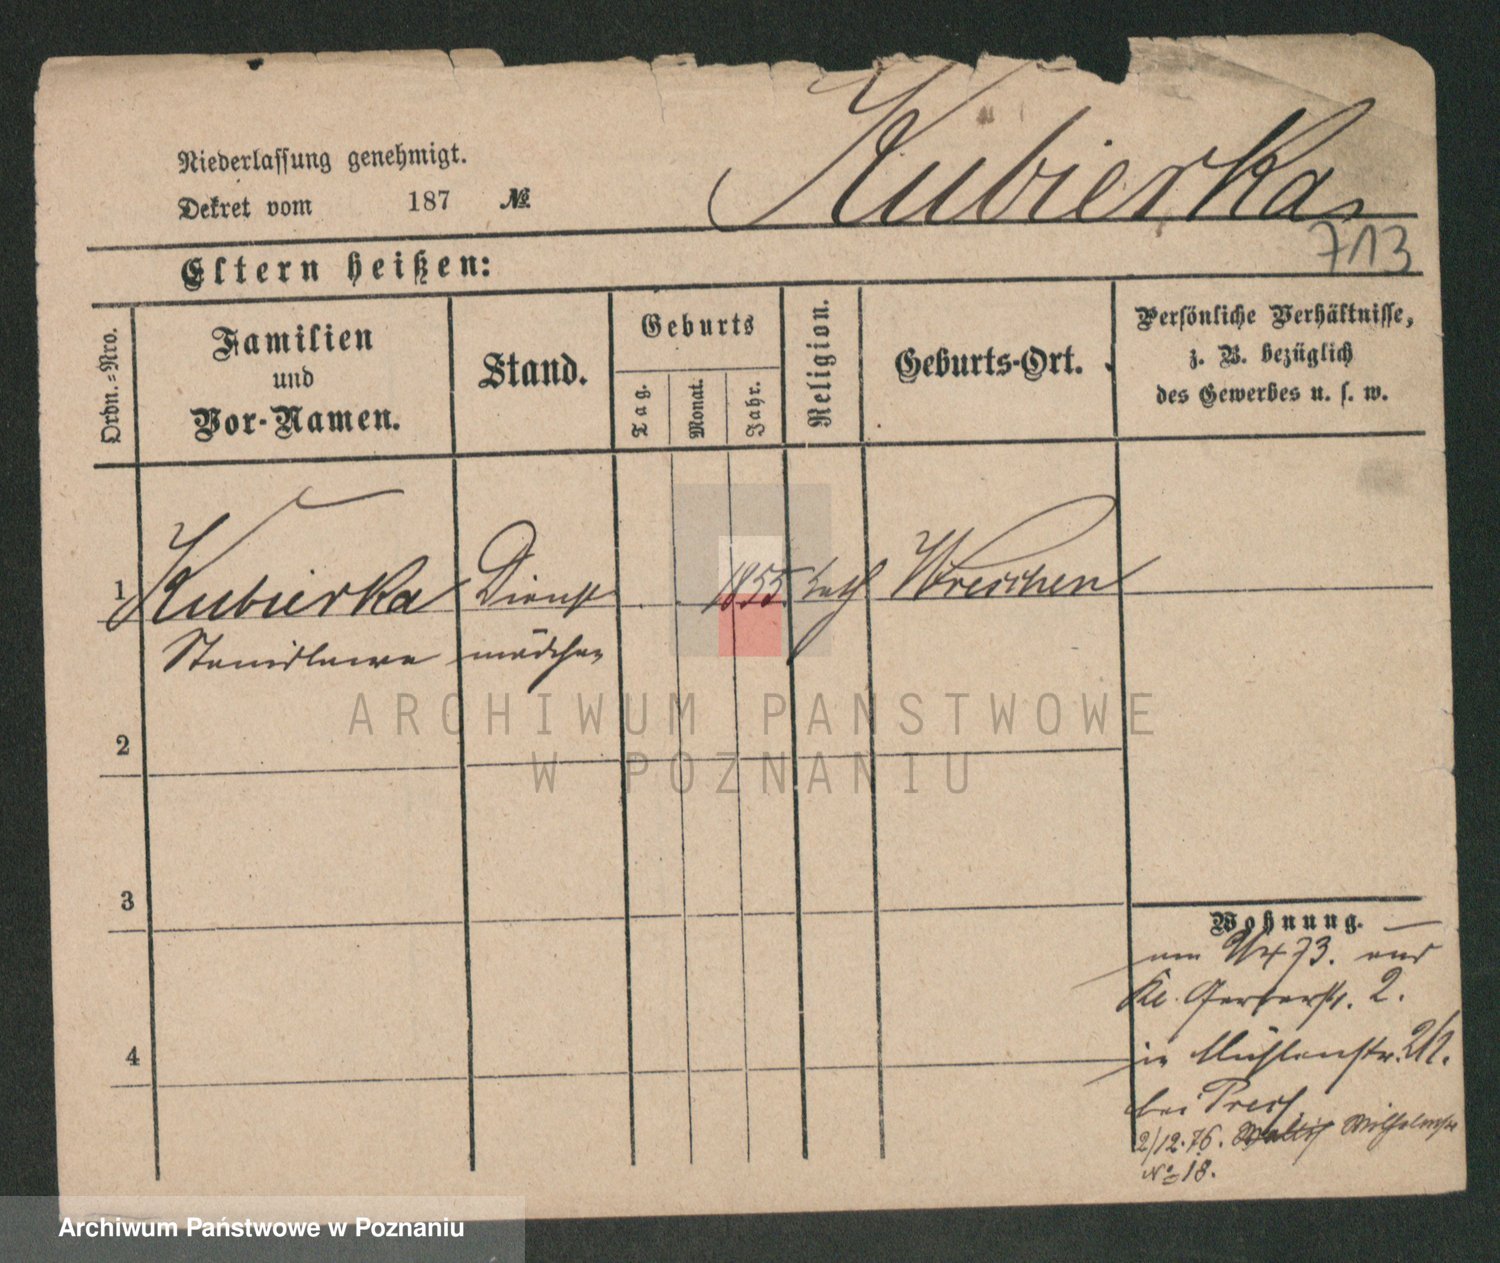 Kubierka
Niederlassung genehmigt.
Dekret vom 187 №
713
Eltern heißen:
Ordn.=Nro.
Familien
und
Vor-Namen.
Stand.
Geburts
Tag.
Monat.
Jahr.
Religion.
Geburts-Ort.
Persönliche Verhältnisse,
z. B. bezüglich
des Gewerbes u. s. w.
1 Kubierka Dienst 1855 kath Wreschen
Stanislawa mädchen
2
3
4
Wohnung.
73. aus
Kl. Gerberstr. 2.
in Mühlenstr.
bei
2/12.76. Wilhelmstr
No 18.
ARCHIWUM PAŃSTWOWE
W POZNANIU
Archiwum Państwowe w Poznaniu